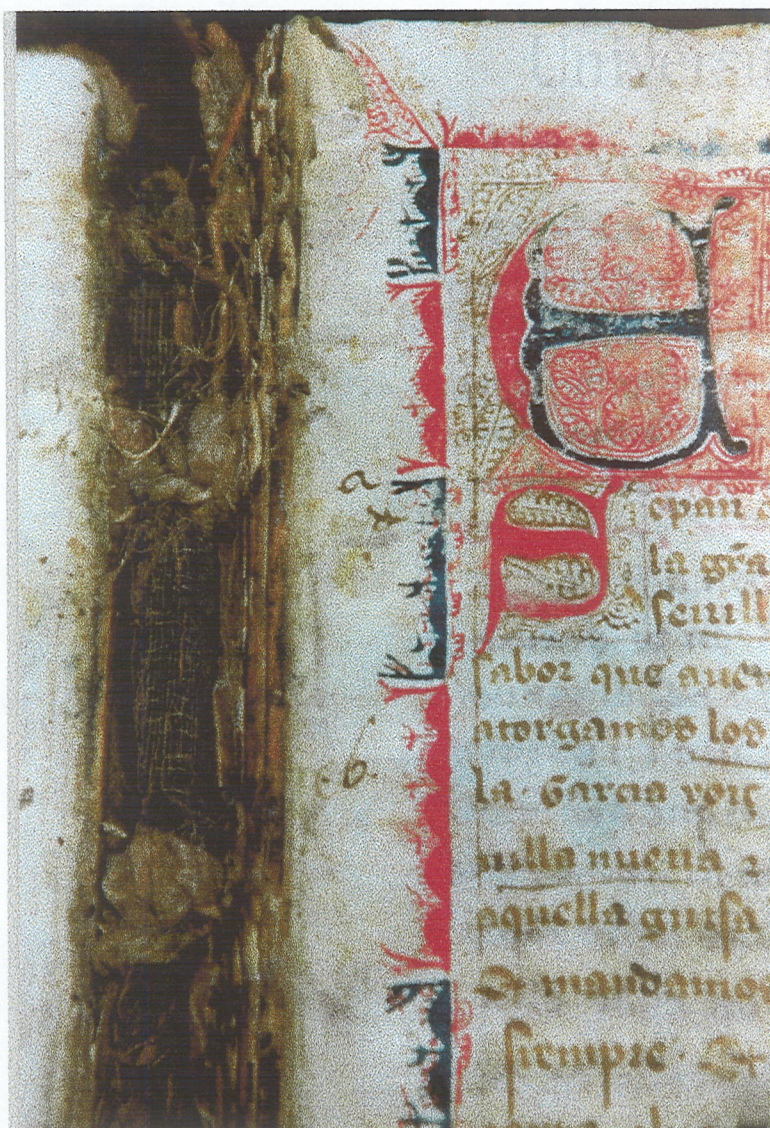 a
epan
la gr̃a
seuill
sabor que auem
atorgamos los
la · Garcia roiç
uilla nueua ⁊
aquella guisa
Et mandamos
siempre · Et
b.